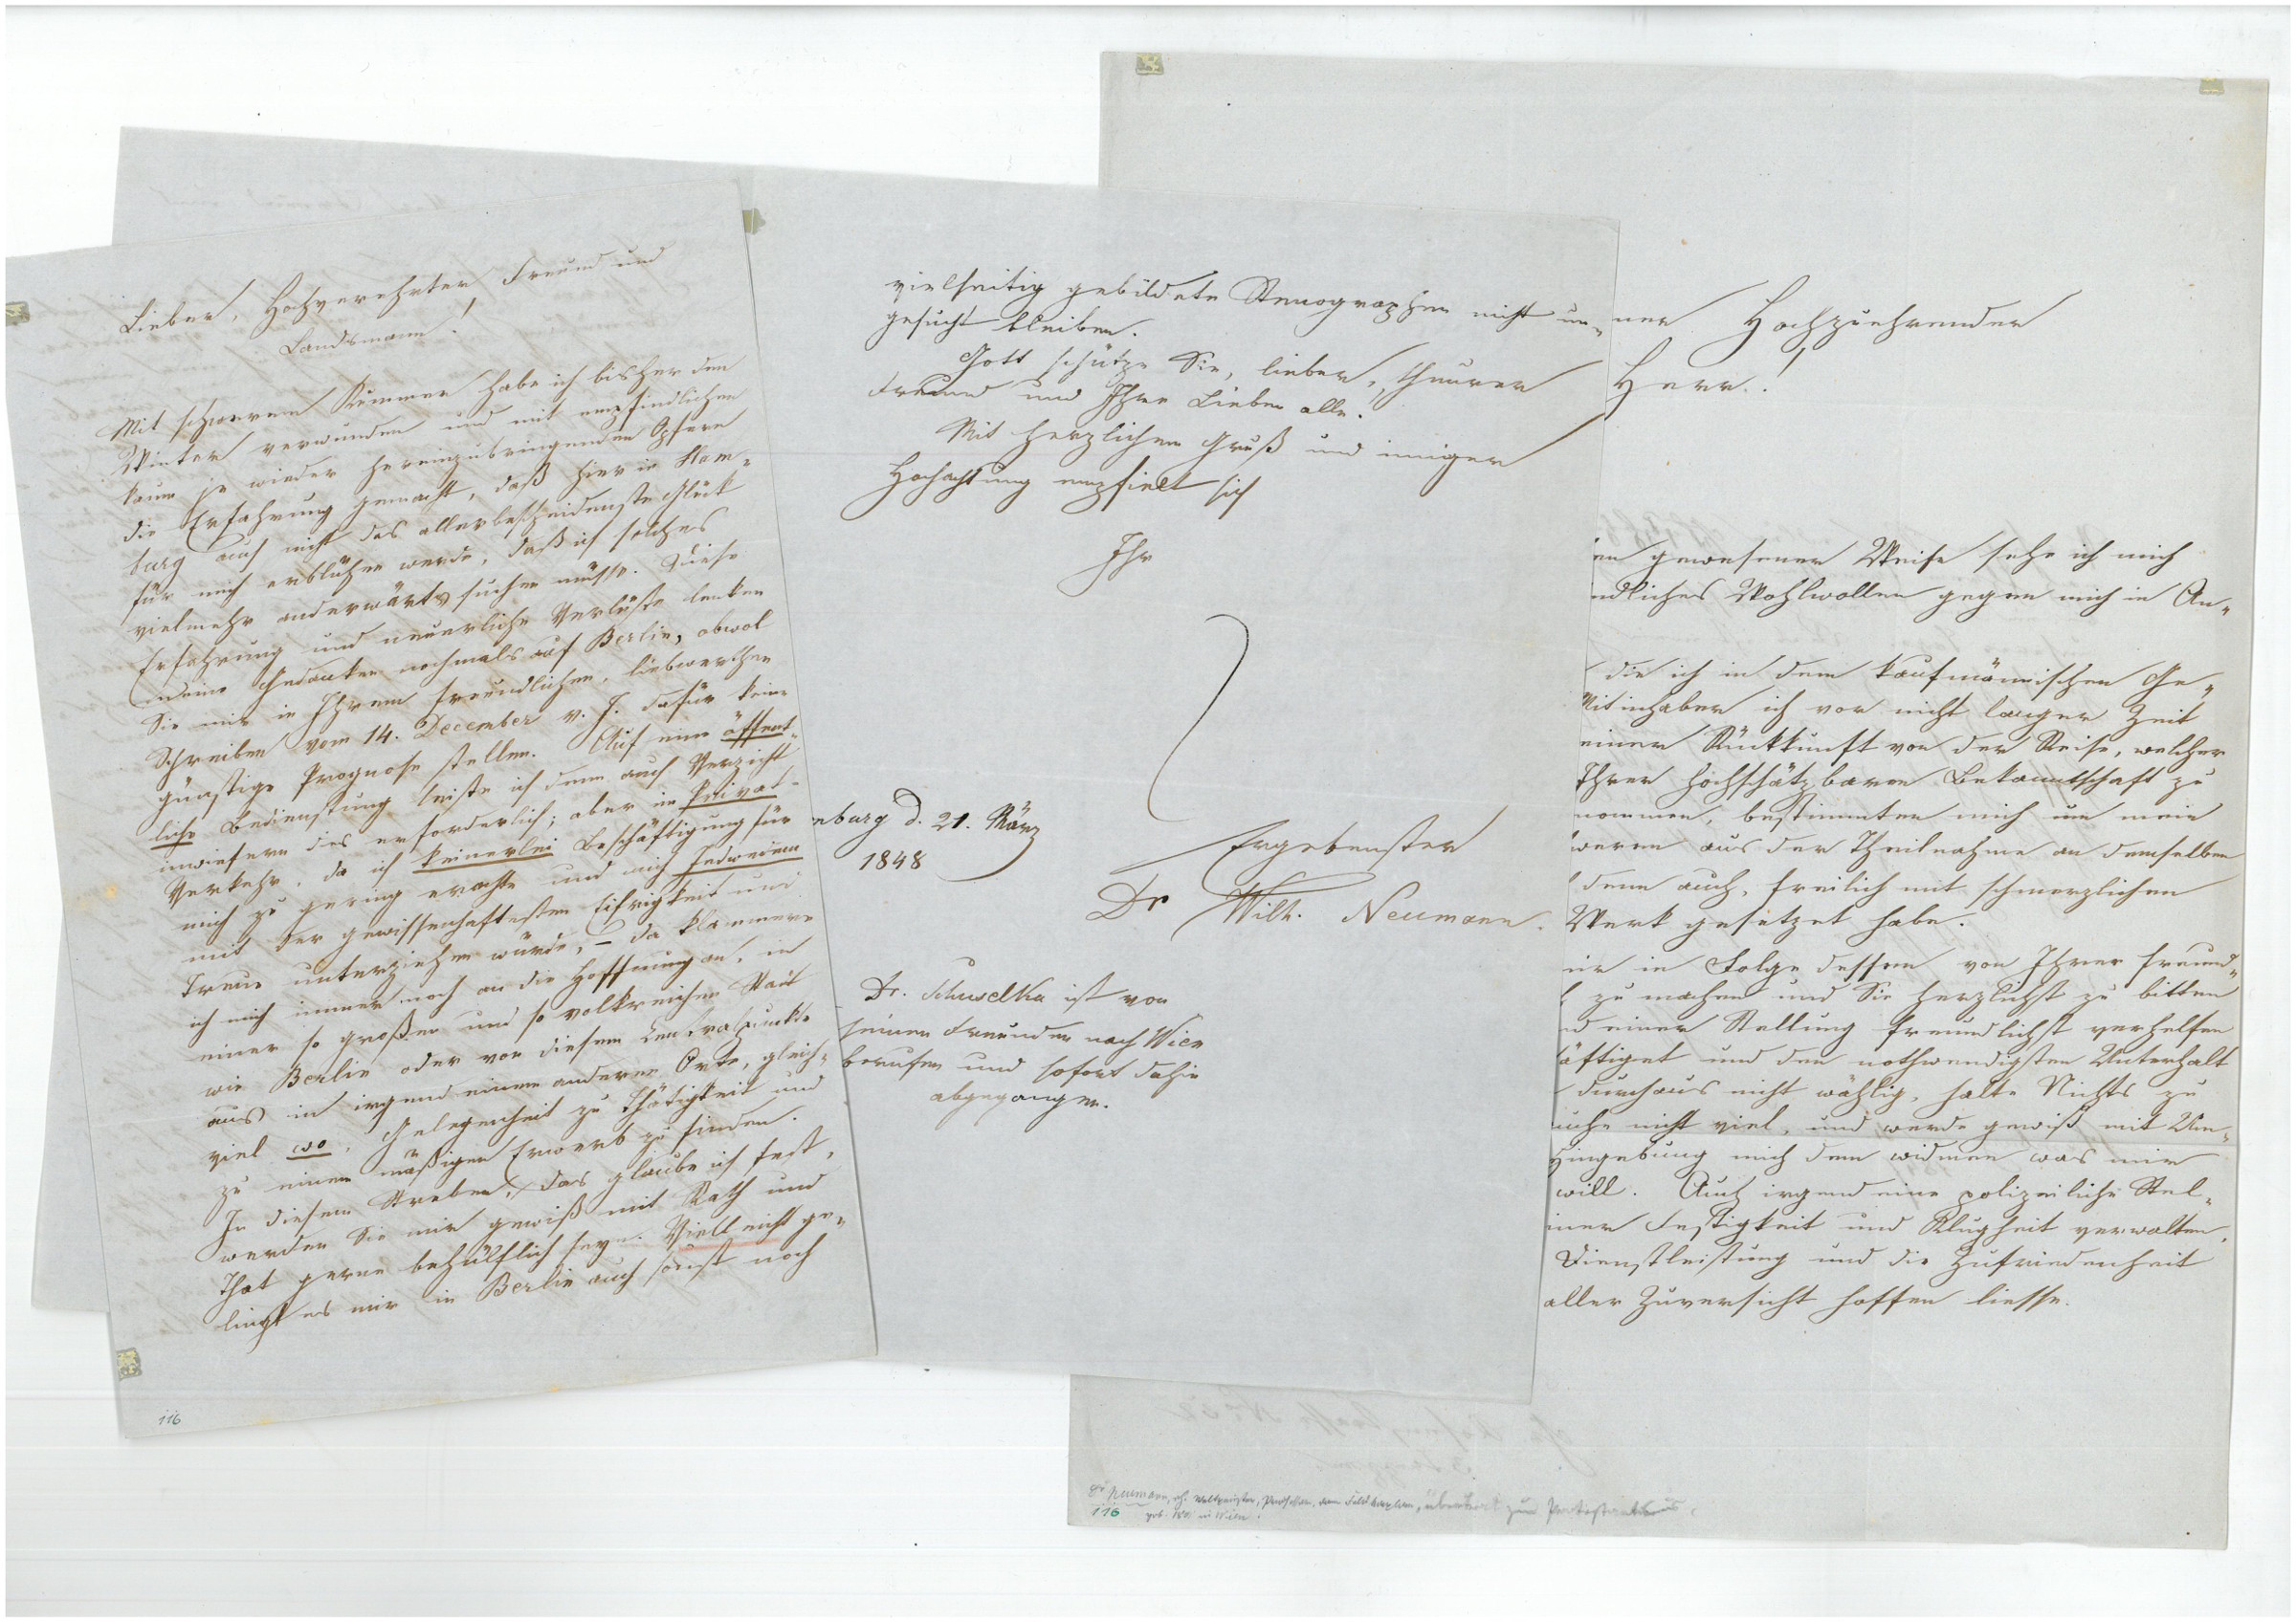 Lieber, Hochverehrter Freund und
Landsmann!
Mit schwerem Kummer habe ich bisher den
Winter verwunden und mit empfindlichen
kaum je wieder hereinzubringenden Opfern
die Erfahrung gemacht, daß hier in Ham-
burg auch nicht das allerbescheidenste Glück
für mich erblühen werde, daß ich solches
vielmehr anderwärts suchen müsse. Diese
Erfahrung und neuerliche Verluste lenken
meine Gedanken nochmals auf Berlin, obwol
Sie mir in Ihrem freundlichen, liebwerthen
Schreiben vom 14. December v. J. dafür keine
günstige Prognose stellen. Auf eine öffent-
liche Bedienstung leiste ich denn auch Verzicht
inwiefern dies erforderlich; aber im Privat-
Verkehr, da ich keinerlei Beschäftigung für
mich zu gering erachte und mich Jedweder
mit der gewissenhaftesten Eifrigkeit und
Treue unterziehen würde, – da klammere
ich mich immer noch an die Hoffnung an, in
einer so großen und so volkreichen Stadt
wie Berlin oder von diesem Centralpunkte
aus in irgend einem anderen Orte, gleich-
viel wo, Gelegenheit zu Thätigkeit und
zu einem mäßigen Erwerb zu finden.
In diesem Streben, das glaube ich fest,
werden Sie mir gewiß mit Rath und
That gerne behülflich seyn. Vielleicht ge-
lingt es mir in Berlin auch sonst noch
116
vielseitig gebildete Stenographen nicht un-
gesucht bleiben.
Gott schütze Sie, lieber, theurer
Freund und Ihre Lieben alle.
Mit herzlichem Gruß und inniger
Hochachtung empfielt sich
Ihr
Ergebenster
Dr Wilh. Neumann.
nburg d. 21. März
1848
Dr. Schuselka ist von
seinen Freunden nach Wien
berufen und sofort dahin
abgegangen.
ner Hochzuehrender
Herr!
en gewesener Weise sehe ich mich
ndliches Wohlwollen gegen mich in An-
die ich in dem kaufmännischen Ge-
Mitinhaber ich vor nicht langer Zeit
einer Rückkunft von der Reise, welcher
Ihrer hochschätzbaren Bekanntschaft zu
nommen, bestimmten mich um mein
weren aus der Theilnahme an demselben
denn auch, freilich mit schmerzlichen
Werk gesetzet habe.
ir in Folge dessen von Ihrer freund-
zu machen und Sie herzlichst zu bitten
nd einer Stellung freundlichst verhelfen
äftiget und den nothwendigsten Unterhalt
durchaus nicht wählig, halte Nichts zu
uche nicht viel, und werde gewiß mit Um-
Hingebung mich dem widmen was mir
will. Auch irgend eine polizeiliche Stel-
iner Festigkeit und Klugheit verwalten,
Dienstleistung und die Zufriedenheit
aller Zuversicht hoffen liesse.
Dr Neumann, Weltpriester, Professor, dann Feldkaplan, übertrat zum Protestantismus,
116 geb. in Wien.